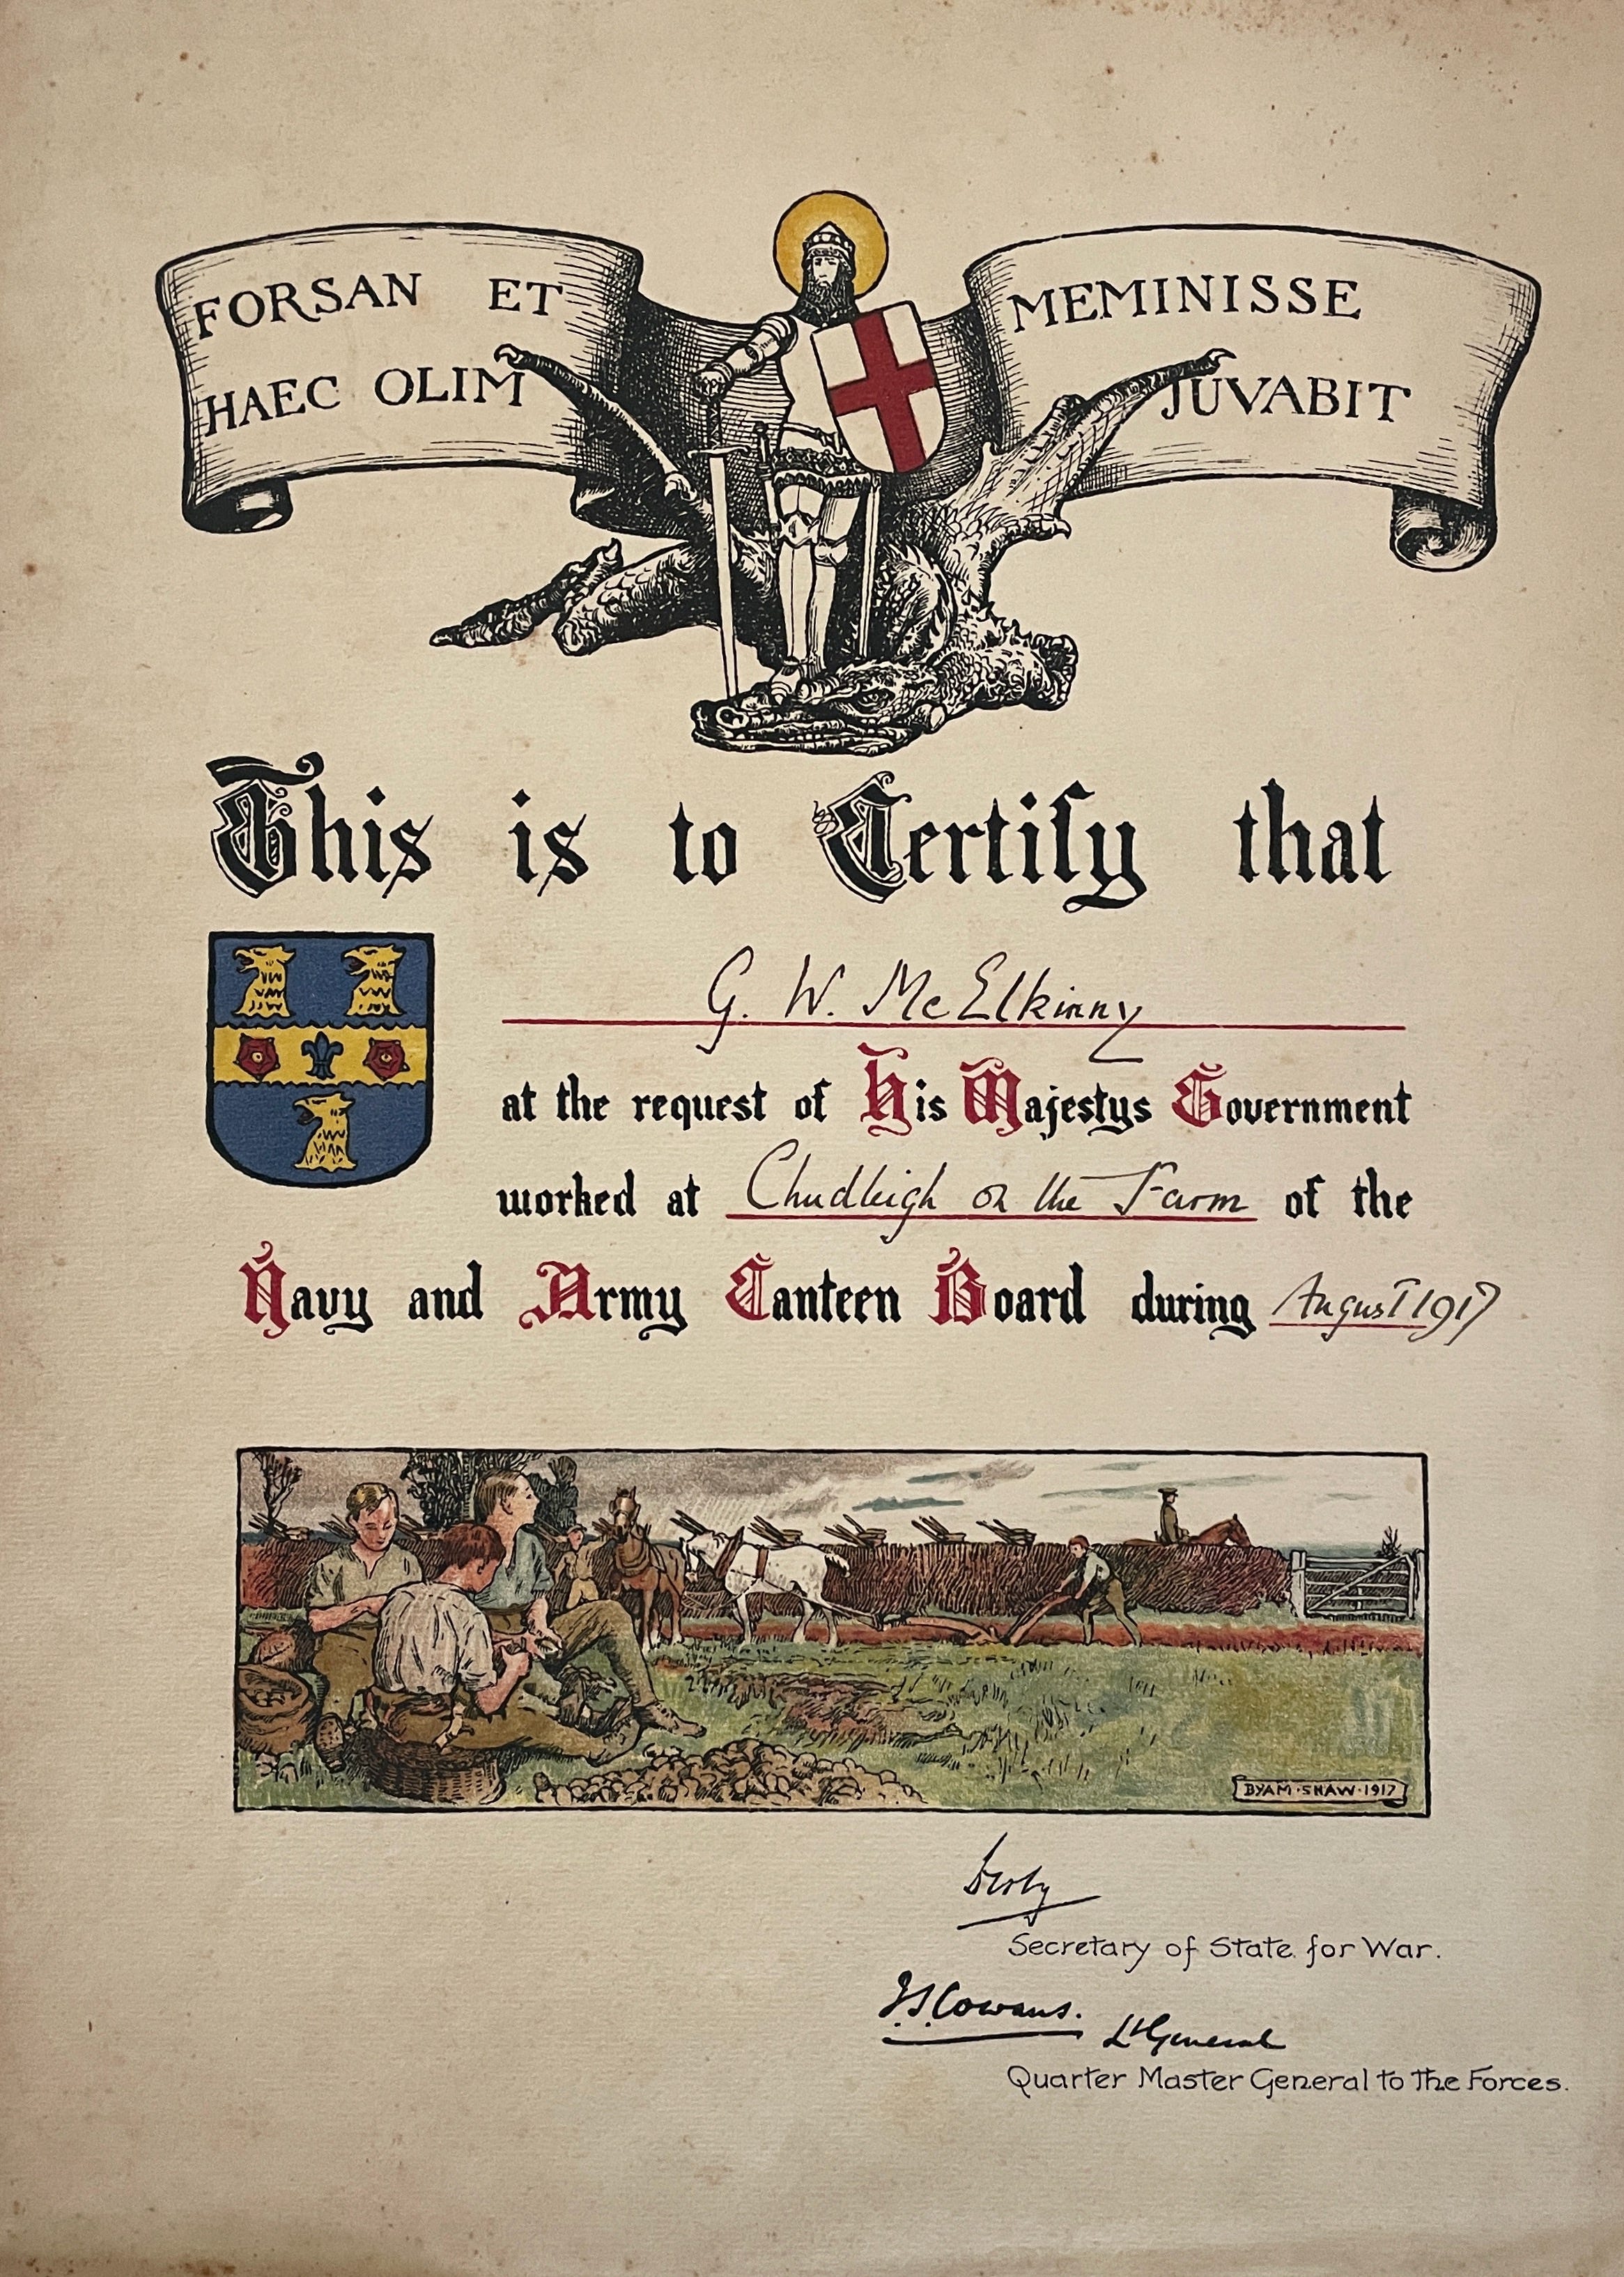 FORSAN ET MEMINISSE
HAEC OLIM JUVABIT
This is to Certify that
G. W. McElkinny
at the request of His Majestys Government
worked at Chudleigh on the Farm of the
Navy and Army Canteen Board during August 1917
BYAM·SHAW·1917
Derby
Secretary of State for War.
J.S. Cowans.
Lt General
Quarter Master General to The Forces.